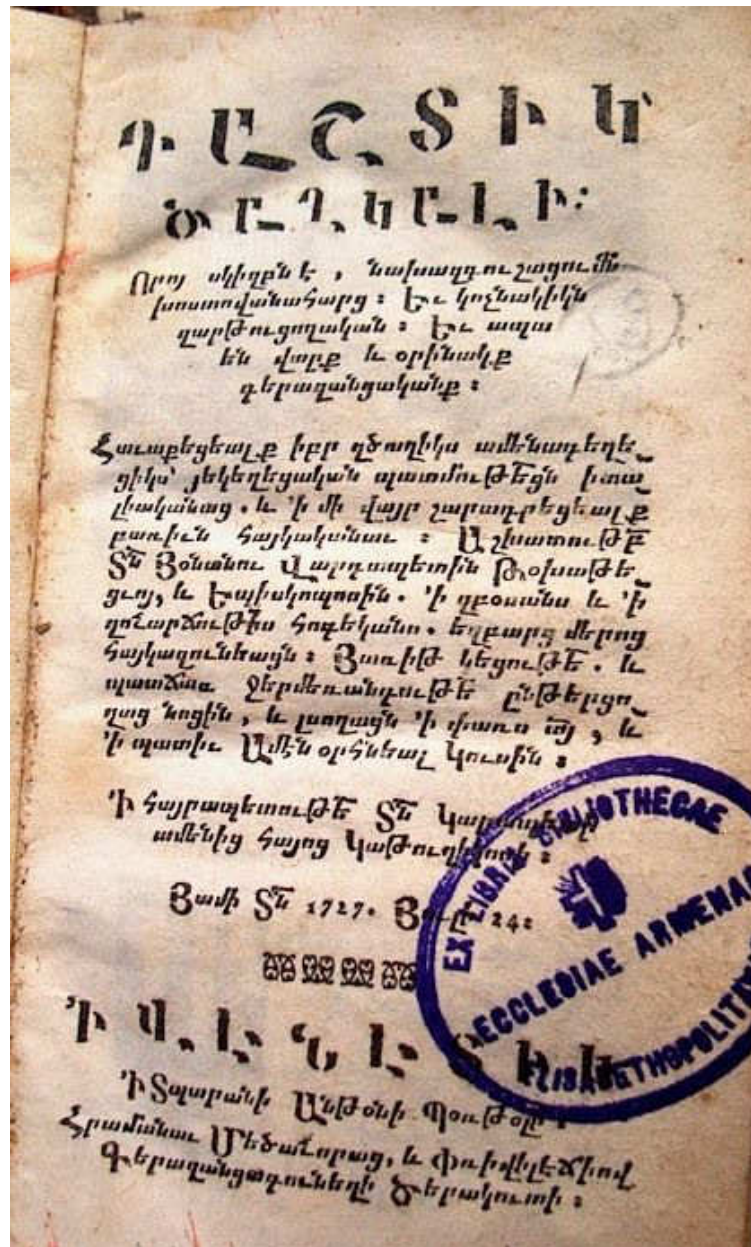 ԴԱՇՏԻԿ
ԾԱՂԿԱԼԻ։
Որոյ սկիզբն է, նախազգուշացումն
խոստովանահարց։ Եւ կոչնակիկն
զարթուցողական։ Եւ ապա
են վարք և օրինակք
գերազանցականք։
Հաւաքեցեալք իբր զծաղիկս ամենագեղե֊
ցիկս՝ յեկեղեցական պատմութեցն իտա֊
լիականաց. և 'ի մի վայր շարադրեցեալք
բառիւն հայկականաւ։ Աշխատութբ
Տն Յօնանու Վարդապետին Թօխաթե֊
ցւոյ, և Եպիսկոպոսին. 'ի զբօսանս և 'ի
զուարճութիս հոգեկանս. եղբարց մերոց
հայկազունեացն։ Յառիթ կեցութե. և
պատճառ ջերմեռանդութե ընթերցօ֊
ղաց նոցին, և լսողացն 'ի փառս այ, և
'ի պատիւ Ամէնօրհնեալ Կուսին։
'Ի հայրապետութե Տն Կարապետի
ամենից հայոց Կաթուղիկոսի։
Յամի Տն 1727. 24։
'Ի ՎԷՆԷՏԻԿ
'Ի Տպարանի Անթօնի Պօռթօլի
Հրամանաւ Մեծաւորաց, և Փռիվիլէճիով
Գերազանցազունեղի Ծերակուտի։
EX LIBRIS BIBLIOTHECAE
ECCLESIAE ARMENAE
ELISABETHOPOLITANAE